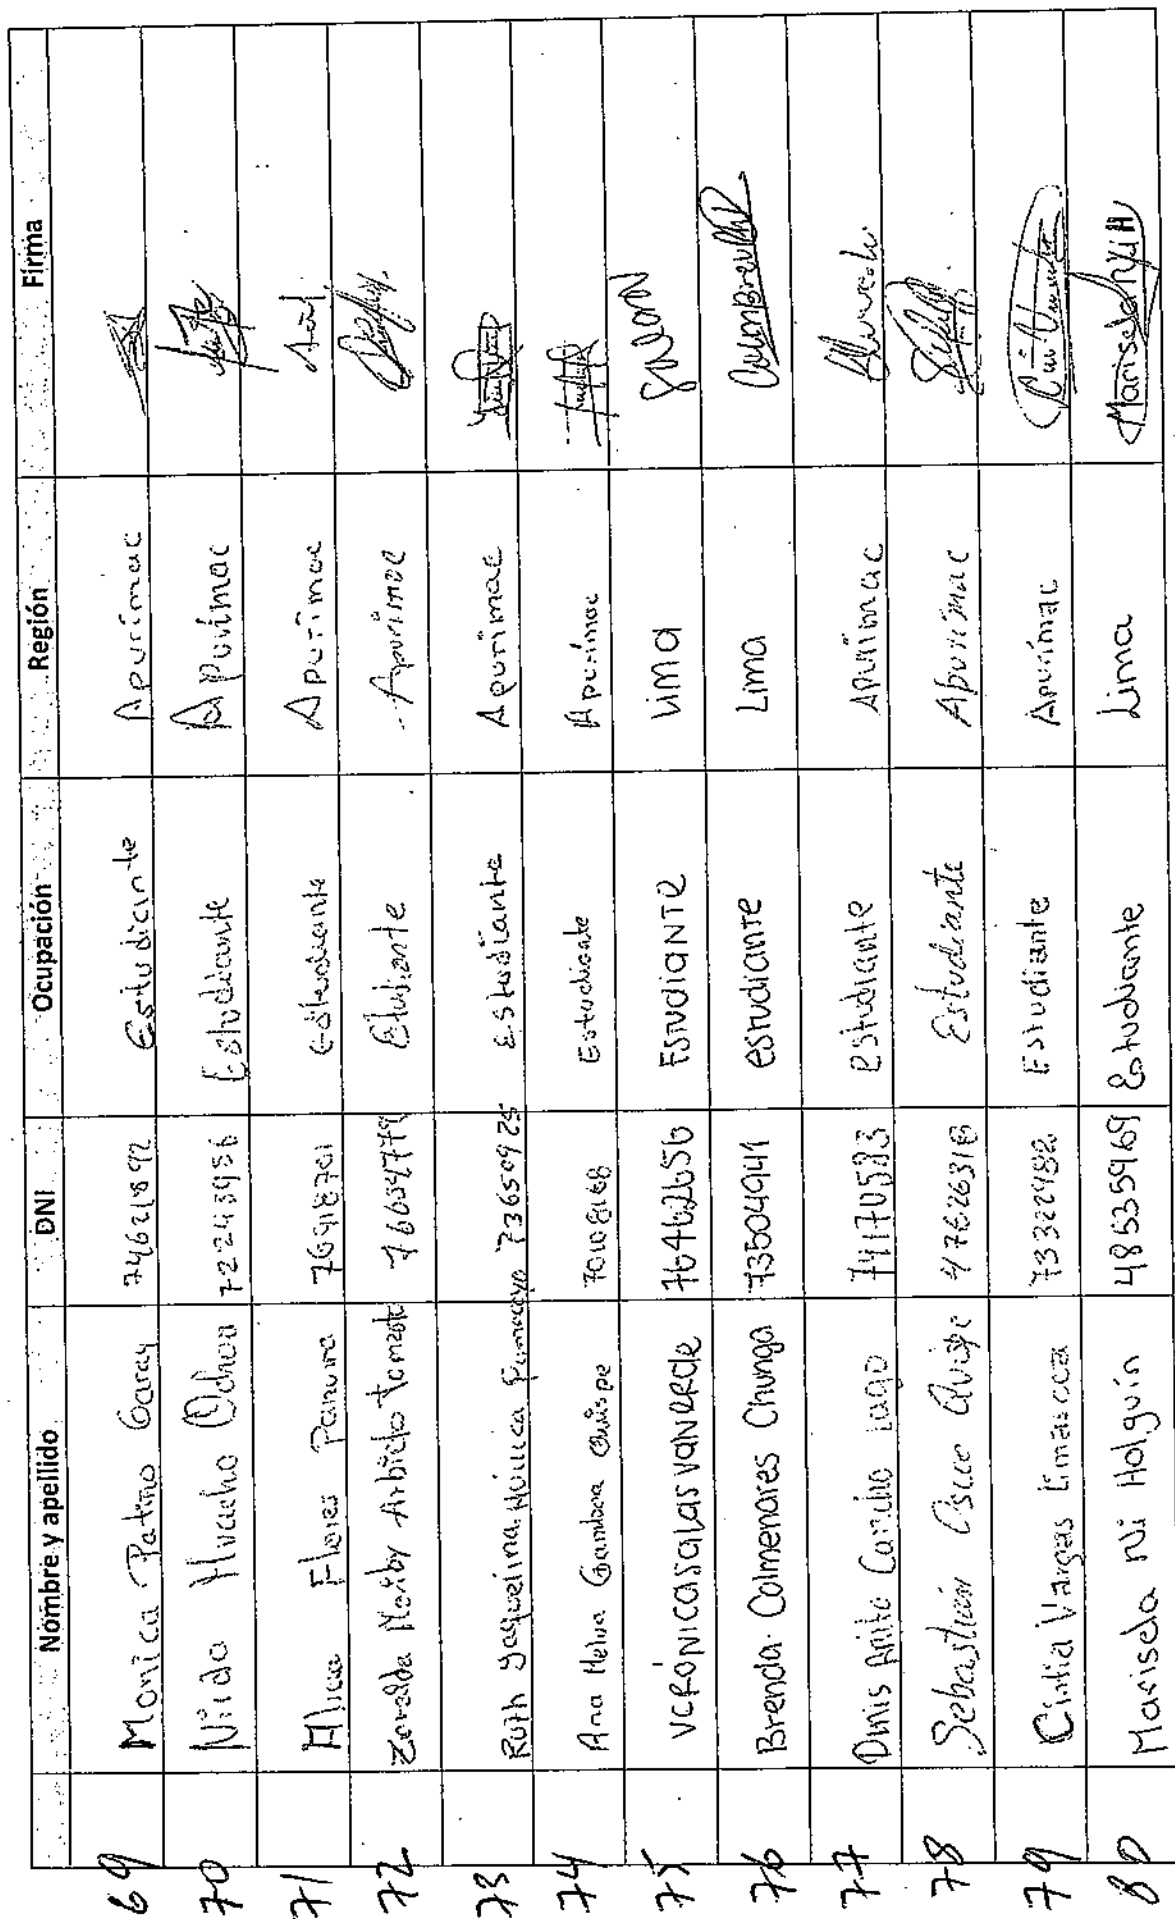 Nombre y apellido DNI Ocupación Región Firma
69 Monica Patiño Garay 74621892 Estudiante Apurimac
70 Nirida Huacho Ochoa 72243956 Estudiante Apurimac
71 Alicia Flores Panura 76918701 estudiante Apurimac
72 Marby Arbieto 76654779 Apurimac
73 Ruth Yaquelina Huillca Pumacayo 73650925 Estudiante Apurimac
74 Ana Melva Gamboa Quispe 70108168 Estudiante Apurimac
75 VERÓNICA SALAS VALVERDE 76462656 ESTUDIANTE Lima
76 Brenda Colmenares Chunga 73504941 estudiante Lima
77 Anita Concho Lugo 74170583 Estudiante Apurimac
78 Sebastian Cscco Quispe 47626318 Estudiante Apurimac
79 Cintia Vargas Limascca 73322982 Estudiante Apurimac
80 Marisela Ñi Holguín 48535969 Estudiante Lima Marisela Ñi H